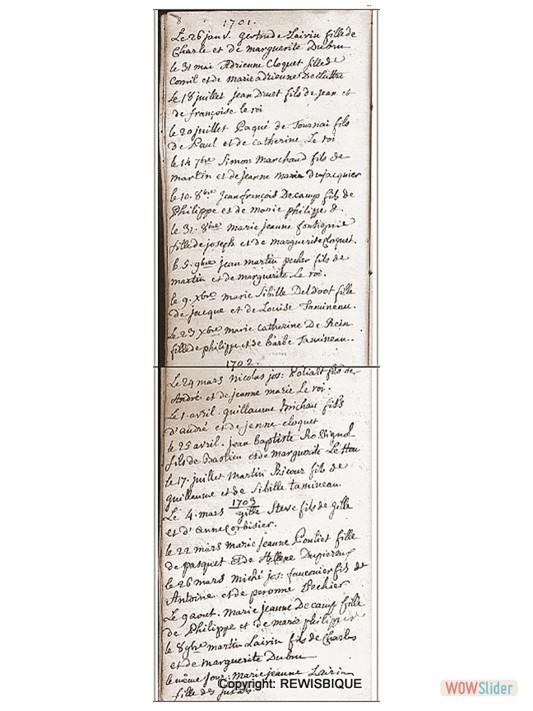 8 1701.
Le 26 janv. gertrude Lairin fille de
Charle et de marguerite Dubru
le 31 mai Adrienne Cloquet fille de
Cornil et de marie adrienne
Le 18 juillet jean Druet fils de jean et
de françoise le roi
le 20 juillet Paqué de Tournai fils
de Paul et de catherine Le roi
le 14 7bre Simon marchand fils de
martin et de jeanne marie dujacquier
le 10. 8bre jean françois Decamps fils de
Philippe et de marie philippe d.
le 31. 8bre marie jeanne fontignie
fille de joseph et de marguerite cloquet.
le 5. 9bre jean martin pecher fils de
martin et de marguerite Le roi.
le 9. Xbre marie Sibille Deldoot fille
de jacque et de Louise Tamineau.
le 23 Xbre marie catherine De Rein
fille de philippe et de barbe Tamineau.
1702.
Le 24 mars nicolas jos. fils de
André et de jeanne marie Le roi.
Le 1. avril. guillaume michau fils
d'andré et de jenne cloquet
le 25 avril. jean baptiste Rossignol
fils de Bastien et de marguerite Le Hou
le 17. juillet martin Ricour fils de
guillaume et de Sibille tamineau
1703
Le 4. mars gille Steve fils de gille
et d'anne Corbisier.
le 22 mars marie jeanne Pouliet fille
de pasquet et de Hellene Dupieraux
le 26 mars miché jos. fauconier fils de
Antoine et de peronne Pechier
Le 9 aout. marie jeanne Decamp fille
de Philippe et de marie philippe
le 8 9bre martin Lairin fils de Charles
et de marguerite Dubru
le même jour: marie jeanne Lairin
fille des
Copyright: REWISBIQUE
WOWSlider